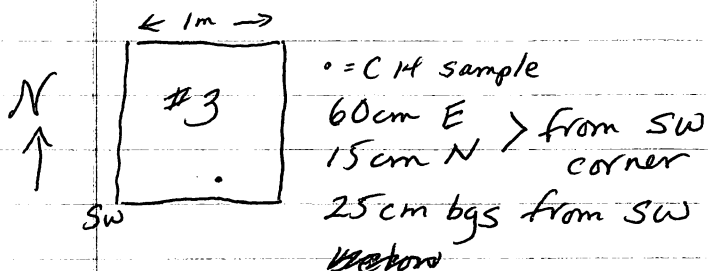 ← 1m →
N
#3
SW
• = C14 sample
60cm E
15cm N > from SW corner
25cm bgs from SW